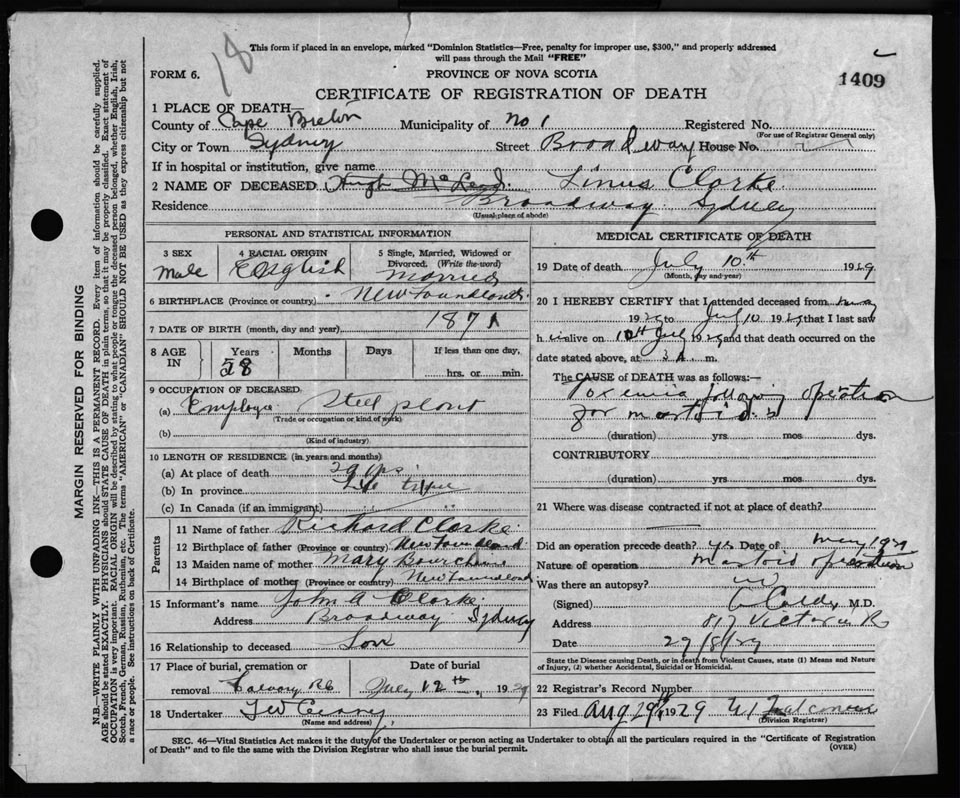 18
This form if placed in an envelope, marked "Dominion Statistics—Free, penalty for improper use, $300," and properly addressed
will pass through the Mail "FREE"
FORM 6.
PROVINCE OF NOVA SCOTIA
1409
CERTIFICATE OF REGISTRATION OF DEATH
1 PLACE OF DEATH—
County of Cape Breton Municipality of No 1 Registered No.
(For use of Registrar General only)
City or Town Sydney Street Broadway House No.
If in hospital or institution, give name
2 NAME OF DECEASED Hugh McLeod. Linus Clarke
Residence Broadway Sydney
(Usual place of abode)
PERSONAL AND STATISTICAL INFORMATION
3 SEX Male
4 RACIAL ORIGIN English
5 Single, Married, Widowed or
Divorced. (Write the word)
Married
6 BIRTHPLACE (Province or country) Newfoundland
7 DATE OF BIRTH (month, day and year) 1871
8 AGE IN
Years Months Days If less than one day,
58 hrs. or min.
9 OCCUPATION OF DECEASED
(a) Employee Steel plant
(Trade or occupation or kind of work)
(b)
(Kind of industry)
10 LENGTH OF RESIDENCE (in years and months)
(a) At place of death 29 yrs
(b) In province Life time
(c) In Canada (if an immigrant)
Parents
11 Name of father Richard Clarke
12 Birthplace of father (Province or country) Newfoundland
13 Maiden name of mother Mary
14 Birthplace of mother (Province or country) Newfoundland
15 Informant's name John A Clarke
Address Broadway Sydney
16 Relationship to deceased Son
17 Place of burial, cremation or Date of burial
removal Calvary RC July 12th, 1929
18 Undertaker T W Curry
(Name and address)
MEDICAL CERTIFICATE OF DEATH
19 Date of death July 10th 1929
(Month, day and year)
20 I HEREBY CERTIFY that I attended deceased from
1929 to July 10 1929 that I last saw
h im alive on 10th July 1929 and that death occurred on the
date stated above, at 3 A. m.
The CAUSE of DEATH was as follows:
Toxemia following operation
for mastoid
(duration) yrs. mos. dys.
CONTRIBUTORY
(duration) yrs. mos. dys.
21 Where was disease contracted if not at place of death?
Did an operation precede death? yes Date of May 1929
Nature of operation mastoid operation
Was there an autopsy? no
(Signed) M.D.
Address 817 Victoria R
Date 29/8/29
State the Disease causing Death, or in death from Violent Causes, state (1) Means and Nature
of Injury, (2) whether Accidental, Suicidal or Homicidal.
22 Registrar's Record Number
23 Filed Aug 29th 1929
(Division Registrar)
SEC. 46—Vital Statistics Act makes it the duty of the Undertaker or person acting as Undertaker to obtain all the particulars required in the "Certificate of Registration
of Death" and to file the same with the Division Registrar who shall issue the burial permit.
(OVER)
MARGIN RESERVED FOR BINDING
N.B.—WRITE PLAINLY WITH UNFADING INK—THIS IS A PERMANENT RECORD. Every item of information should be carefully supplied.
AGE should be stated EXACTLY. PHYSICIANS should STATE CAUSE OF DEATH in plain terms, so that it may be properly classified. Exact statement of
OCCUPATION is very important. RACIAL ORIGIN will be described by stating to what people or tongue the deceased person belonged, whether English, Irish,
Scotch, French, German, Russian, Ruthenian, etc. The terms "AMERICAN" or "CANADIAN" SHOULD NOT BE USED as they express citizenship but not
a race or people. See instructions on back of Certificate.